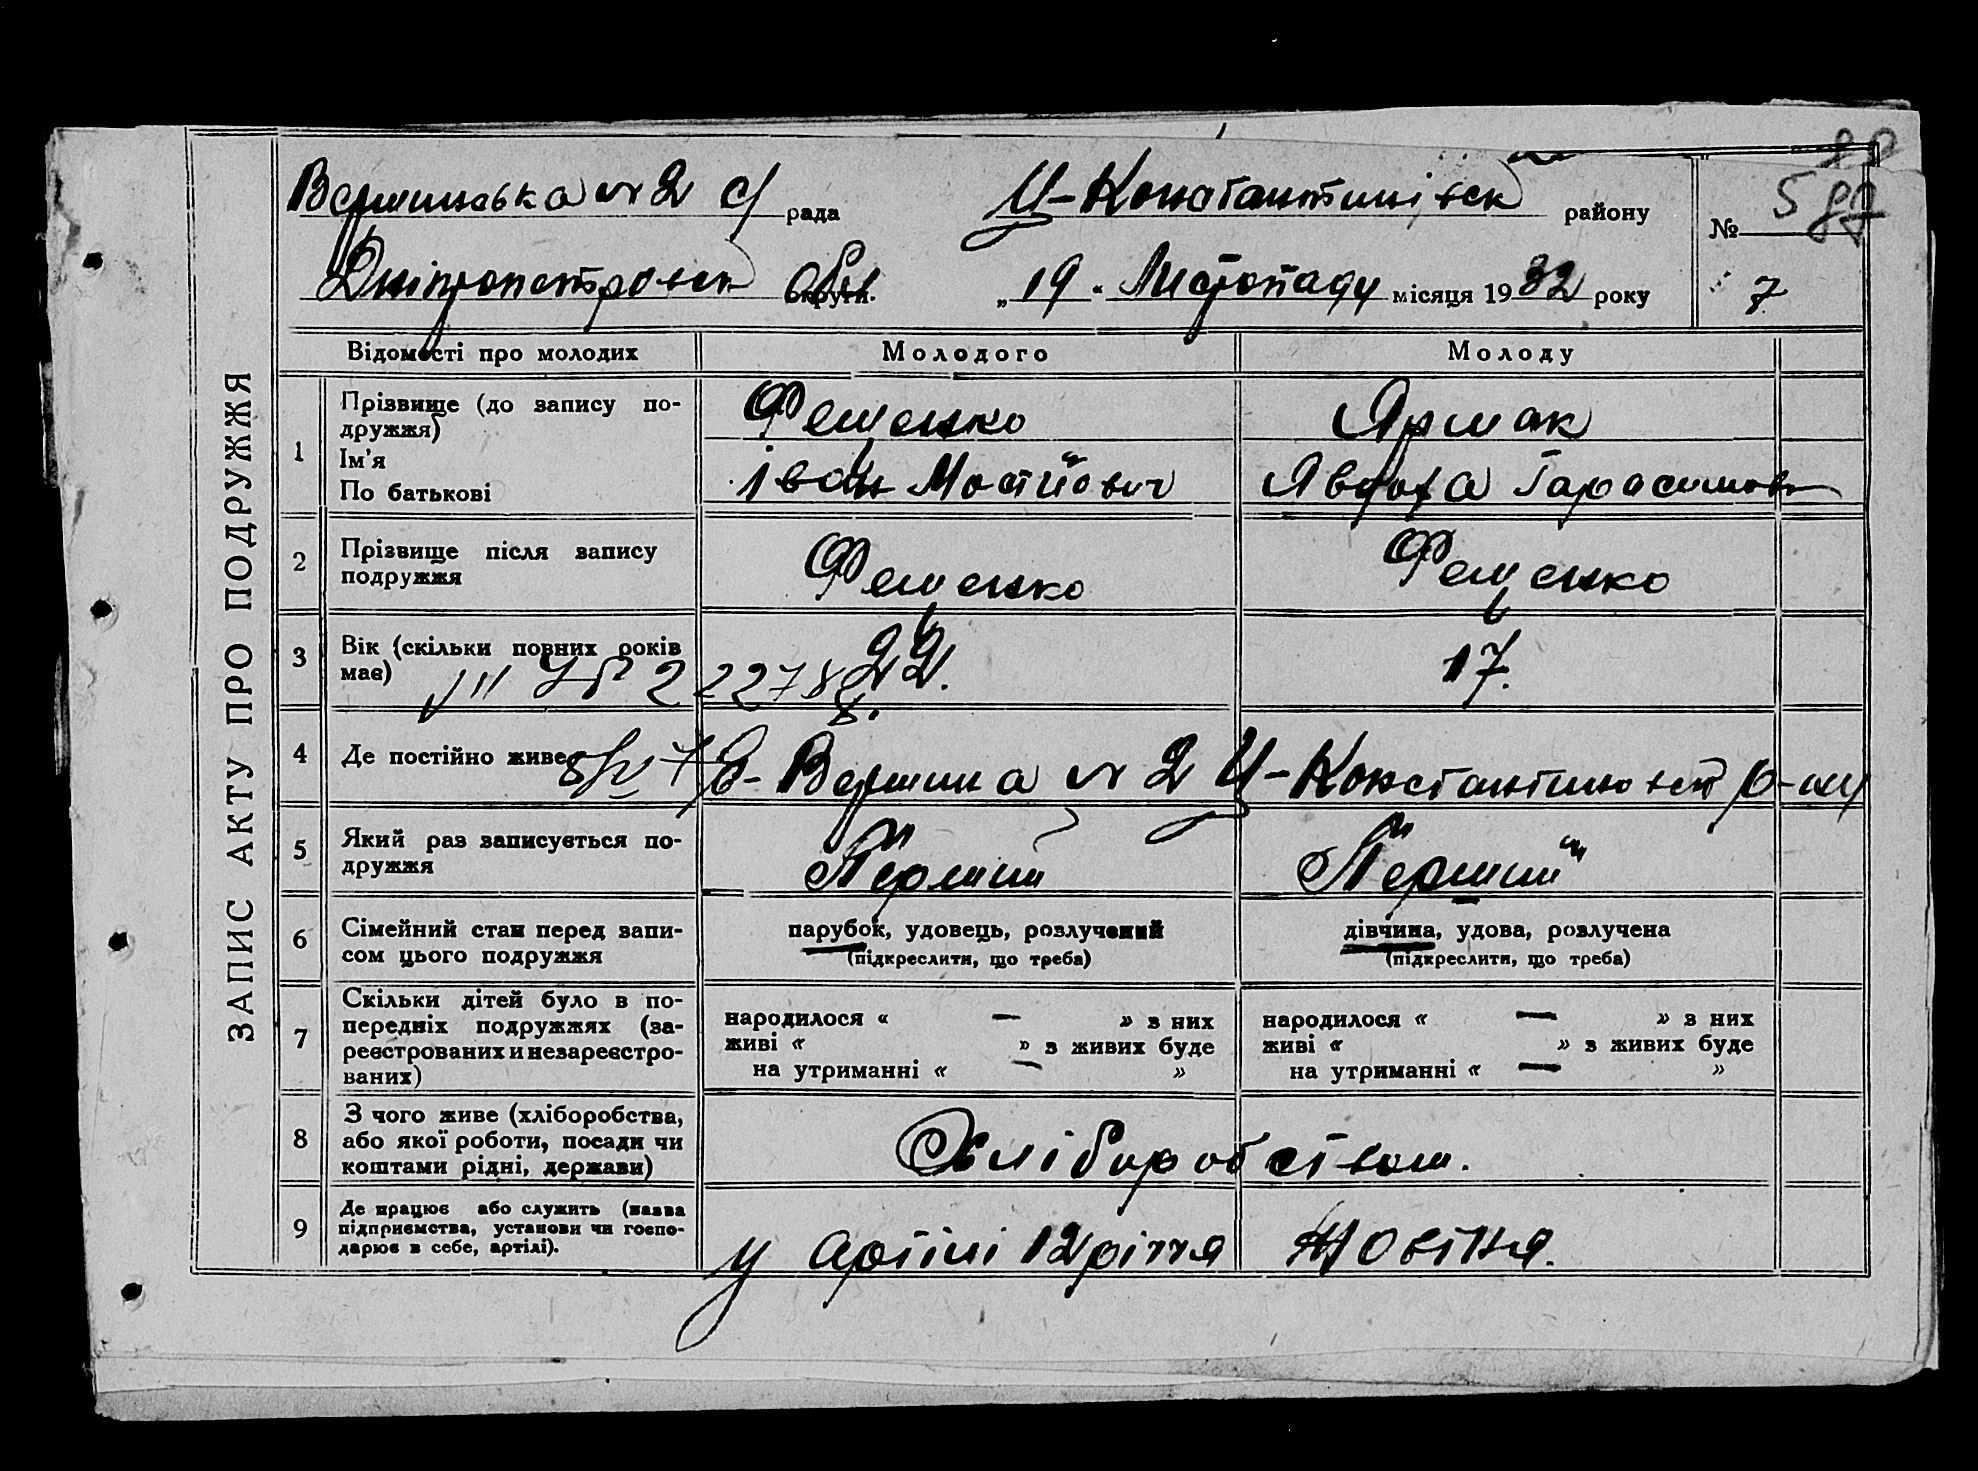 ЗАПИС АКТУ ПРО ПОДРУЖЖЯ
Вершинська № 2 с/ рада Ц-Константинівськ району
№ 587
Дніпропетровськ округи. Обл „19“ Листопаду місяця 1932 року
7
Відомості про молодих Молодого Молоду
1 Прізвище (до запису по-
дружжя) Фещенко Ярмак
Ім'я
По батькові Іван Мотійович Явдоха Гарасимовн
2 Прізвище після запису
подружжя Фещенко Фещенко
3 Вік (скільки повних років
має) 22. 17.
22278
4 Де постійно живе с-Вершина № 2 Ц-Константинівськ р-ну
5 Який раз записується по-
дружжя Перший Перший
6 Сімейний стан перед запи-
сом цього подружжя
парубок, удовець, розлучений дівчина, удова, розлучена
(підкреслити, що треба) (підкреслити, що треба)
7 Скільки дітей було в по-
передніх подружжях (за-
реєстрованих и незареєстро-
ваних)
народилося « — » з них
живі « » з живих буде
на утриманні « — »
народилося « — » з них
живі « » з живих буде
на утриманні « — »
8 З чого живе (хліборобства,
або якої роботи, посади чи
коштами рідні, держави) Хліборобством.
9 Де працює або служить (назва
підприємства, установи чи госпо-
дарює в себе, артілі). у артілі 12 річчя Жовтня.